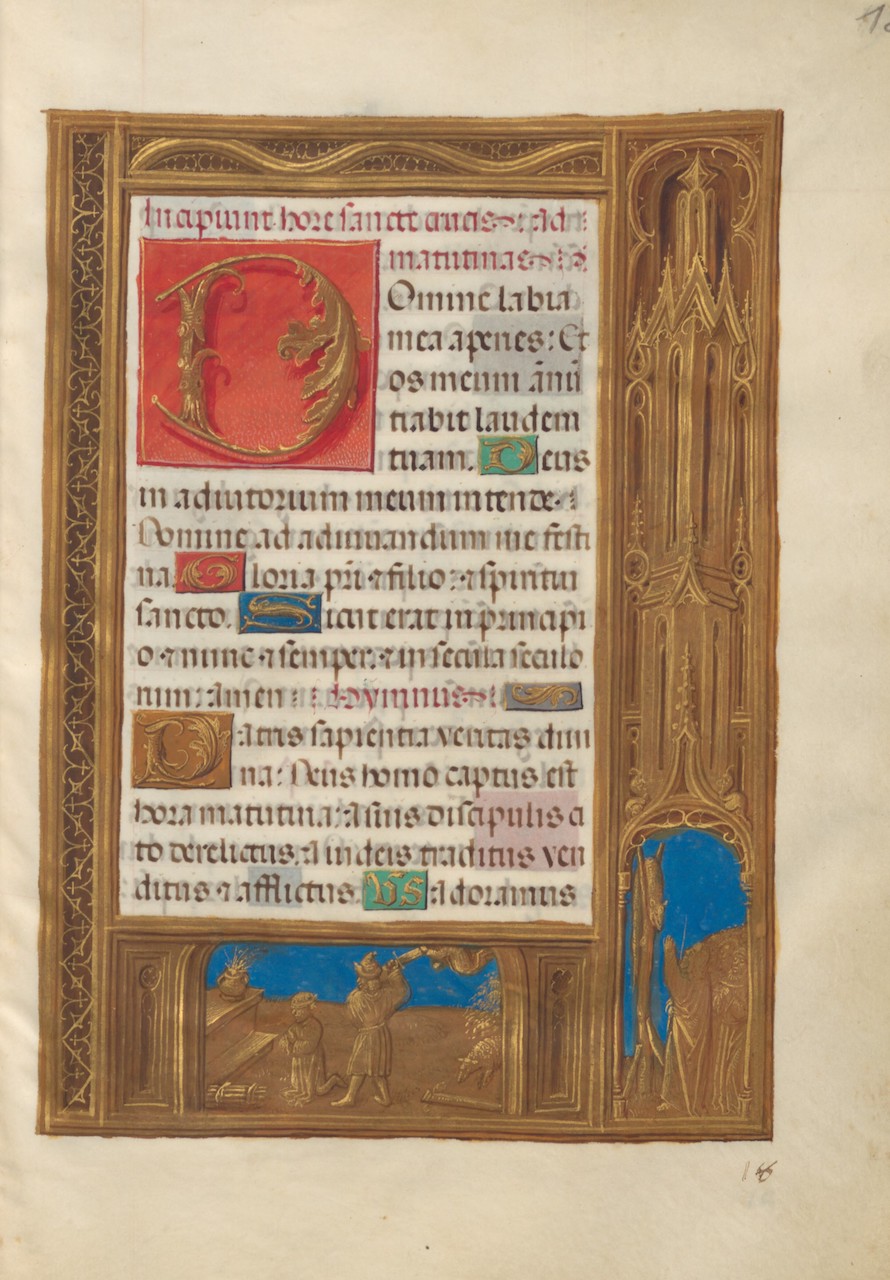 Incipiunt hore sancte crucis. Ad
matutinas
Domine labia
mea aperies: Et
os meum ānū
tiabit laudem
tuam. Deus
in adiutorium meum intende.
Domine ad adiuuandum me festi
na. Gloria pr̄i ⁊ filio: ⁊ spiritui
sancto. Sicut erat in principi
o ⁊ nunc ⁊ semper: ⁊ in secula seculo
rum: Amen: Hymnus
Patris sapientia veritas diui
na: Deus homo captus est
hora matutina: A suis discipulis ci
to derelictus. A iudeis traditus ven
ditus ⁊ afflictus. Vs Adoramus